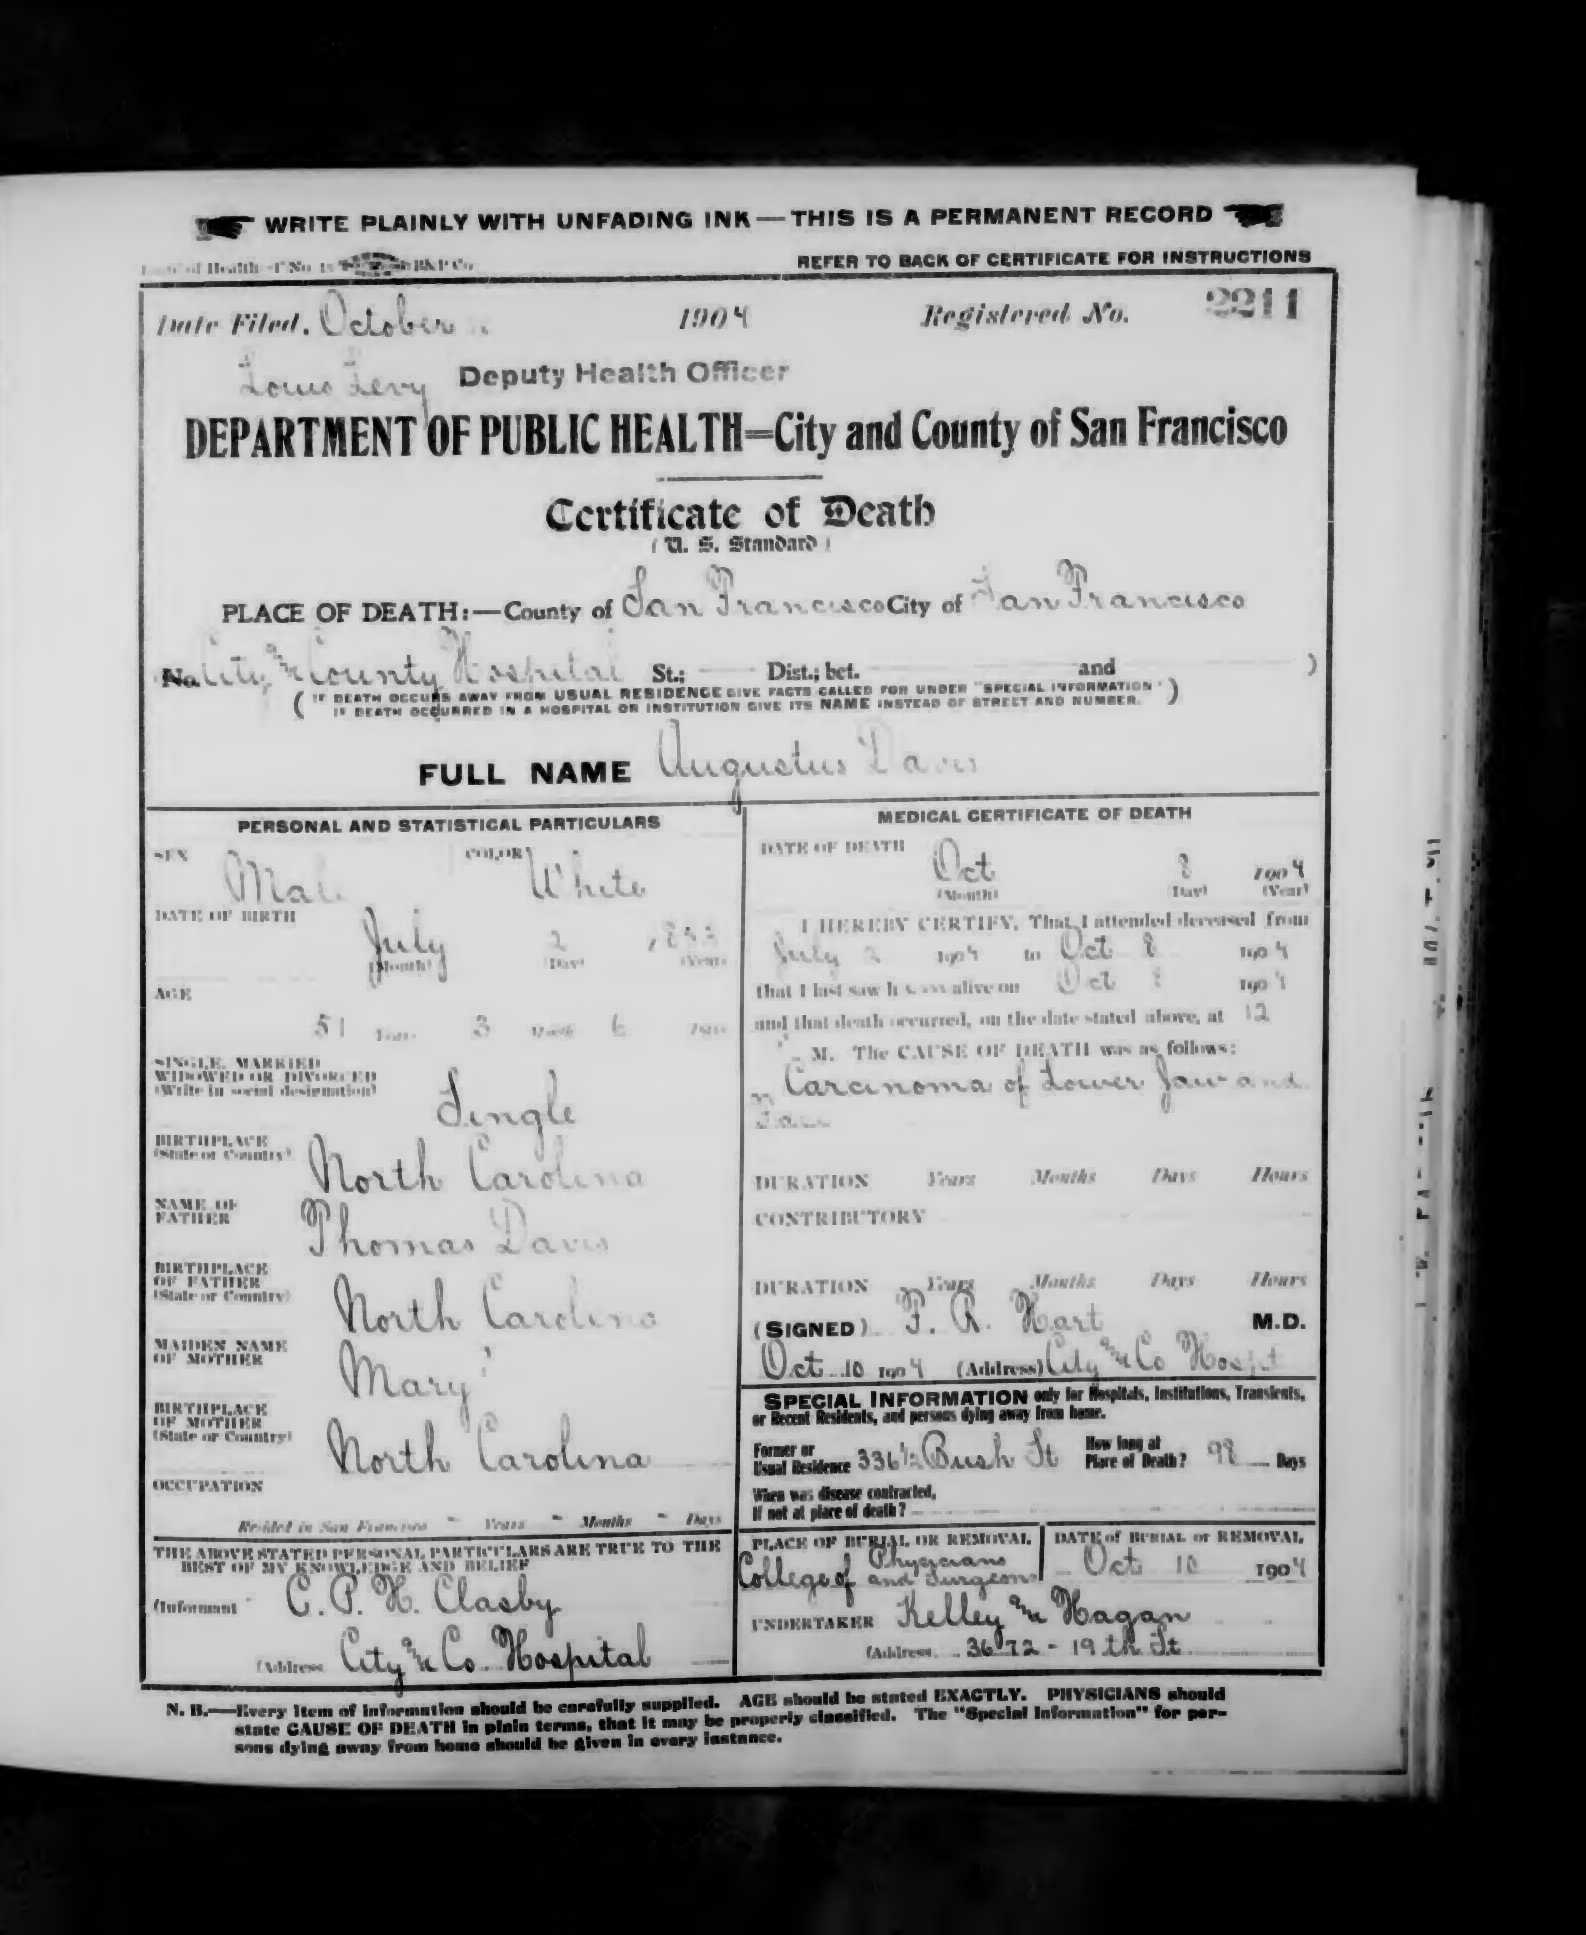 WRITE PLAINLY WITH UNFADING INK — THIS IS A PERMANENT RECORD
of Health No. B&P Co.
REFER TO BACK OF CERTIFICATE FOR INSTRUCTIONS
Date Filed, October 1904 Registered No. 2211
Louis Levy Deputy Health Officer
DEPARTMENT OF PUBLIC HEALTH=City and County of San Francisco
Certificate of Death
(U. S. Standard)
PLACE OF DEATH:—County of San Francisco City of San Francisco
No. City and County Hospital St.; Dist.; bet. and )
( IF DEATH OCCURS AWAY FROM USUAL RESIDENCE GIVE FACTS CALLED FOR UNDER "SPECIAL INFORMATION" )
IF DEATH OCCURRED IN A HOSPITAL OR INSTITUTION GIVE ITS NAME INSTEAD OF STREET AND NUMBER.
FULL NAME Augustus Davis
PERSONAL AND STATISTICAL PARTICULARS
SEX COLOR
Male White
DATE OF BIRTH
July 2 1853
(Month) (Day) (Year)
AGE
51 Years 3 Months 6 Days
SINGLE, MARRIED
WIDOWED OR DIVORCED
(Write in social designation)
Single
BIRTHPLACE
(State or Country)
North Carolina
NAME OF
FATHER
Thomas Davis
BIRTHPLACE
OF FATHER
(State or Country)
North Carolina
MAIDEN NAME
OF MOTHER
Mary ?
BIRTHPLACE
OF MOTHER
(State or Country)
North Carolina
OCCUPATION
Resided in San Francisco - Years - Months - Days
THE ABOVE STATED PERSONAL PARTICULARS ARE TRUE TO THE
BEST OF MY KNOWLEDGE AND BELIEF
(Informant C. P. H. Clasby
(Address City and Co. Hospital
MEDICAL CERTIFICATE OF DEATH
DATE OF DEATH
Oct 8 1904
(Month) (Day) (Year)
I HEREBY CERTIFY, That I attended deceased from
July 2 1904 to Oct 8 1904
that I last saw him alive on Oct 8 1904
and that death occurred, on the date stated above, at 12
M. The CAUSE OF DEATH was as follows:
Carcinoma of Lower Jaw and
Face
DURATION Years Months Days Hours
CONTRIBUTORY
DURATION Years Months Days Hours
(SIGNED) F. R. Hart M.D.
Oct. 10 1904 (Address) City and Co Hospt
SPECIAL INFORMATION only for Hospitals, Institutions, Transients,
or Recent Residents, and persons dying away from home.
Former or
Usual Residence 336½ Bush St
How long at
Place of Death? 98 Days
When was disease contracted,
If not at place of death?
PLACE OF BURIAL OR REMOVAL
College of Physicians and Surgeons
DATE of BURIAL or REMOVAL
Oct 10 1904
UNDERTAKER Kelley and Hagan
(Address 3672 - 19th St
N. B.—Every item of information should be carefully supplied. AGE should be stated EXACTLY. PHYSICIANS should
state CAUSE OF DEATH in plain terms, that it may be properly classified. The "Special Information" for per-
sons dying away from home should be given in every instance.